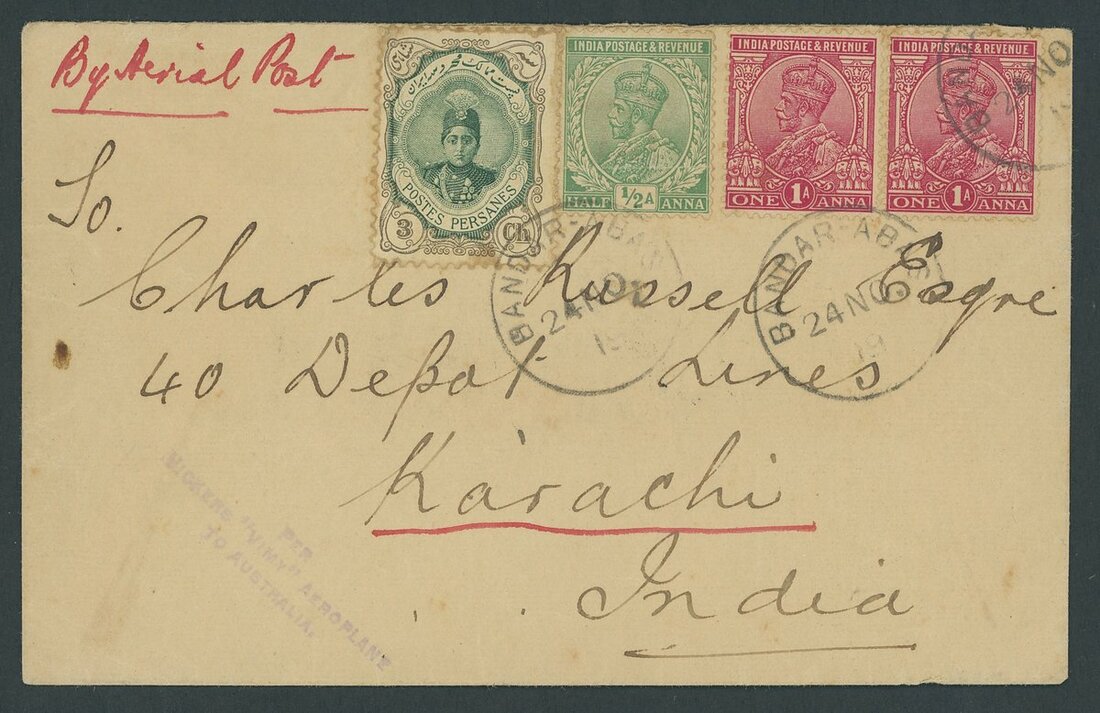 By Aerial Post
POSTES PERSANES
3 Ch
INDIA POSTAGE & REVENUE
1/2 A
HALF ANNA
INDIA POSTAGE & REVENUE
1A
ONE ANNA
INDIA POSTAGE & REVENUE
1A
ONE ANNA
24 NO
To.
BANDAR-ABA
24 NO
19
BANDAR-ABA
24 NO
19
Charles Russell Esqre
40 Depot Lines
Karachi
India
PER
VICKERS "VIMY" AEROPLANE
TO AUSTRALIA.